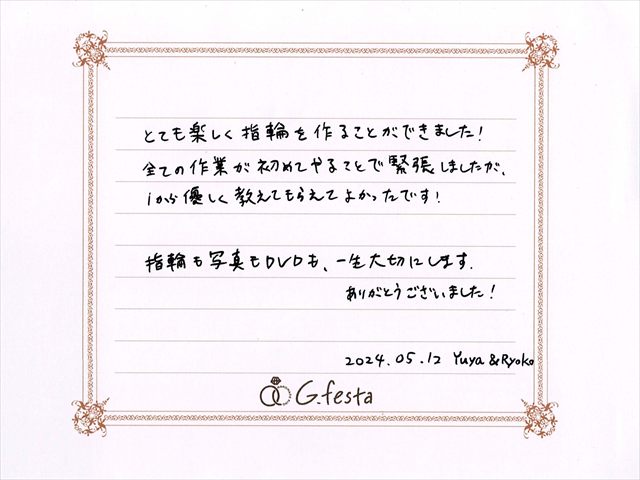 とても楽しく指輪を作ることができました!
全ての作業が初めてやることで緊張しましたが、
1から優しく教えてもらえてよかったです!
指輪も写真もDVDも、一生大切にします.
ありがとうございました!
2024.05.12 Yuya & Ryoko
G.festa